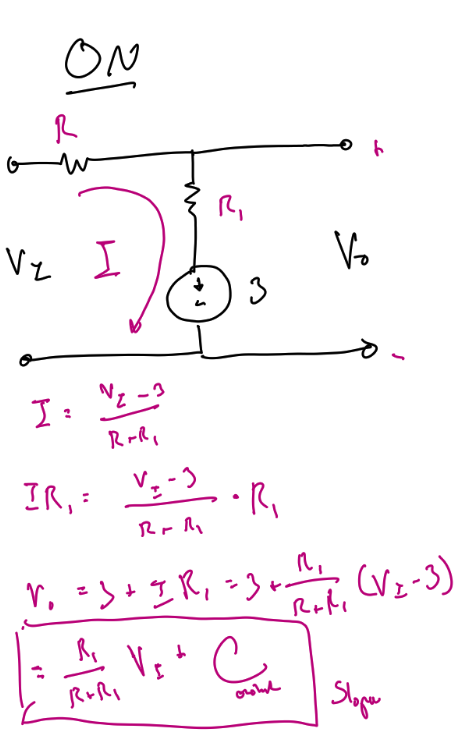 ON
R
+
R₁
V_I
I
3
V₀
-
I = (V_I - 3) / (R + R₁)
IR₁ = (V_I - 3) / (R + R₁) · R₁
V₀ = 3 + I R₁ = 3 + R₁ / (R + R₁) (V_I - 3)
= R₁ / (R + R₁) V_I + C
Slope